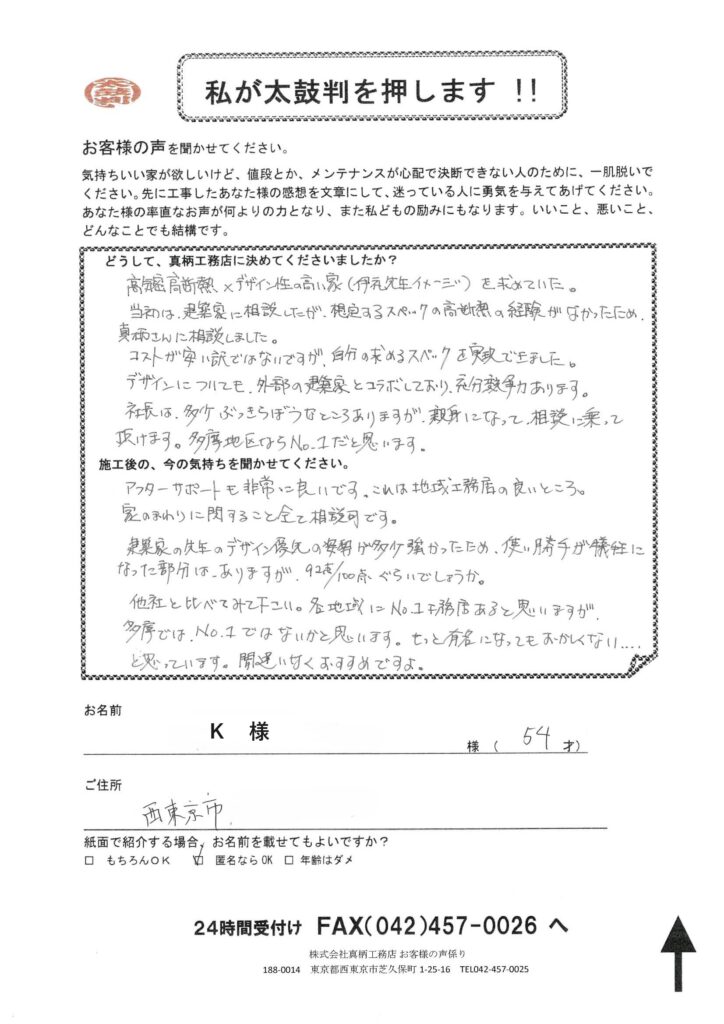 太鼓判
私が太鼓判を押します !!
お客様の声を聞かせてください。
気持ちいい家が欲しいけど、値段とか、メンテナンスが心配で決断できない人のために、一肌脱いで
ください。先に工事したあなた様の感想を文章にして、迷っている人に勇気を与えてあげてください。
あなた様の率直なお声が何よりの力となり、また私どもの励みにもなります。いいこと、悪いこと、
どんなことでも結構です。
どうして、真柄工務店に決めてくださいましたか？
高気密高断熱×デザイン性の高い家(伊礼先生イメージ)を求めていた。
当初は、建築家に相談したが、想定するスペックの高断熱の経験がなかったため、
真柄さんに相談しました。
コストが安い訳ではないですが、自分の求めるスペックを実現できました。
デザインについても、外部の建築家とコラボしており、充分競争力あります。
社長は、多少ぶっきらぼうなところありますが、親身になって、相談に乗って
頂けます。多摩地区ならNo.1だと思います。
施工後の、今の気持ちを聞かせてください。
アフターサポートも非常に良いです。これは地域工務店の良いところ。
家のまわりに関すること全て相談可です。
建築家の先生のデザイン優先の姿勢が多少強かったため、使い勝手が犠牲に
なった部分は、ありますが、92点/100点ぐらいでしょうか。
他社と比べてみて下さい。各地域にNo.1工務店あると思いますが、
多摩では、No.1ではないかと思います。もっと有名になってもおかしくない....
と思っています。間違いなくおすすめですよ。
お名前
K 様
様 ( 54 才)
ご住所
西東京市
紙面で紹介する場合、お名前を載せてもよいですか？
□ もちろんOK ☑ 匿名ならOK □ 年齢はダメ
24時間受付け FAX(042)457-0026 へ
株式会社真柄工務店 お客様の声係り
188-0014 東京都西東京市芝久保町 1-25-16 TEL042-457-0025